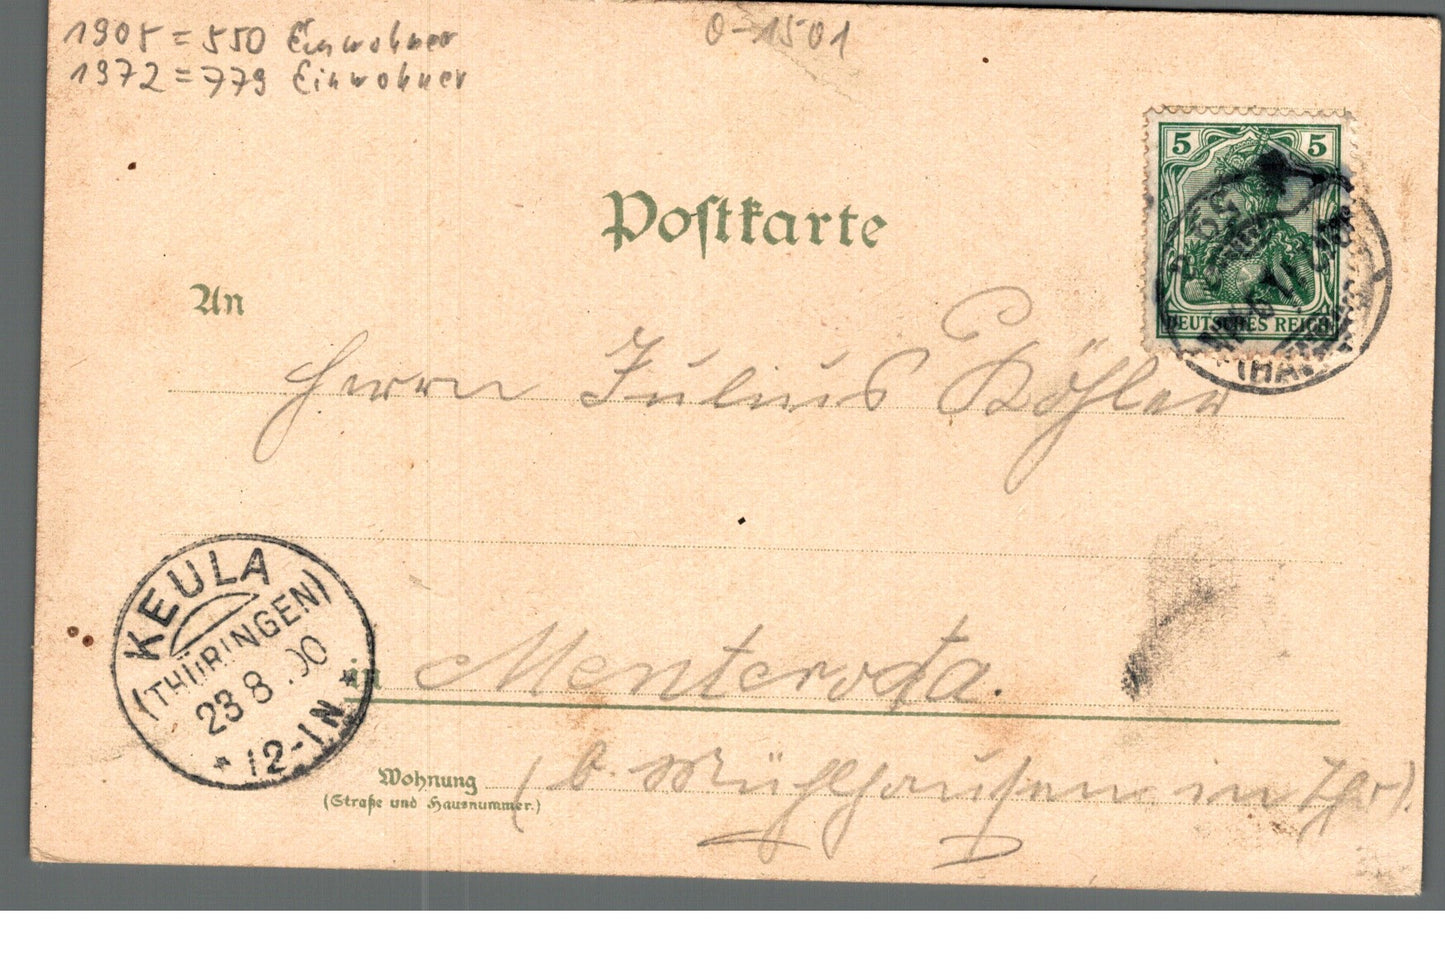 1905 = 550 Einwohner
1972 = 779 Einwohner
O-1501
5 5
DEUTSCHES REICH
Postkarte
An
Herrn Julius Köhler
KEULA
(THÜRINGEN)
23 8 .00
* 12-1N *
in Menteroda.
Wohnung
(Straße und Hausnummer.)
(b. Mühlhausen in Thür).